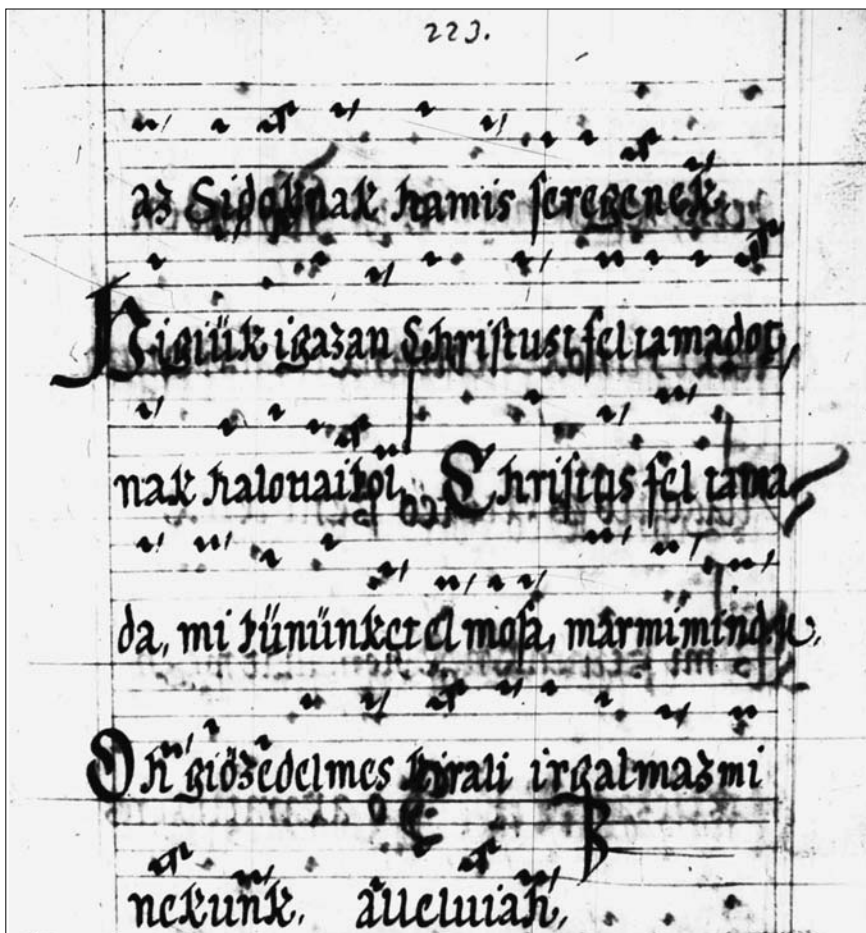 223.
az Sidoknak hamis ſeregenek,
Higiük igazan Chriſtust fel tamadot,
nak halouaitol, Chriſtus fel tama
da, mi bününket el moſa, mar mi mind
Oh giözedelmes kirali irgalmaz mi
nekunk, alleluiah,